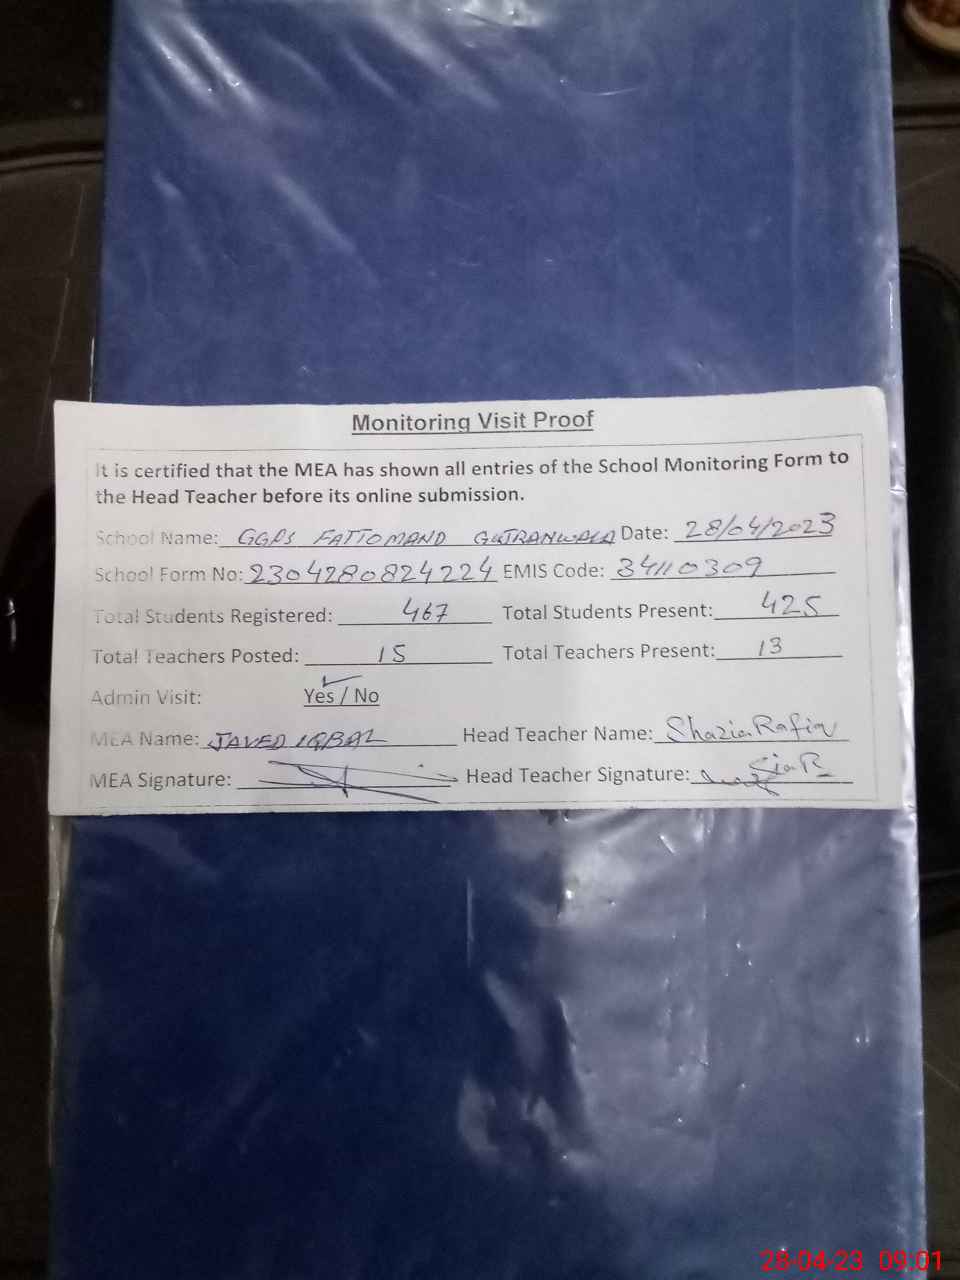 Monitoring Visit Proof
It is certified that the MEA has shown all entries of the School Monitoring Form to
the Head Teacher before its online submission.
School Name: GGPS FATTOMAND GUJRANWALA Date: 28/04/2023
School Form No: 2304280824224 EMIS Code: 34110309
Total Students Registered: 467 Total Students Present: 425
Total Teachers Posted: 15 Total Teachers Present: 13
Admin Visit: Yes / No
MEA Name: JAVED IQBAL Head Teacher Name: Shazia Rafiq
MEA Signature: Head Teacher Signature:
28-04-23 09:01